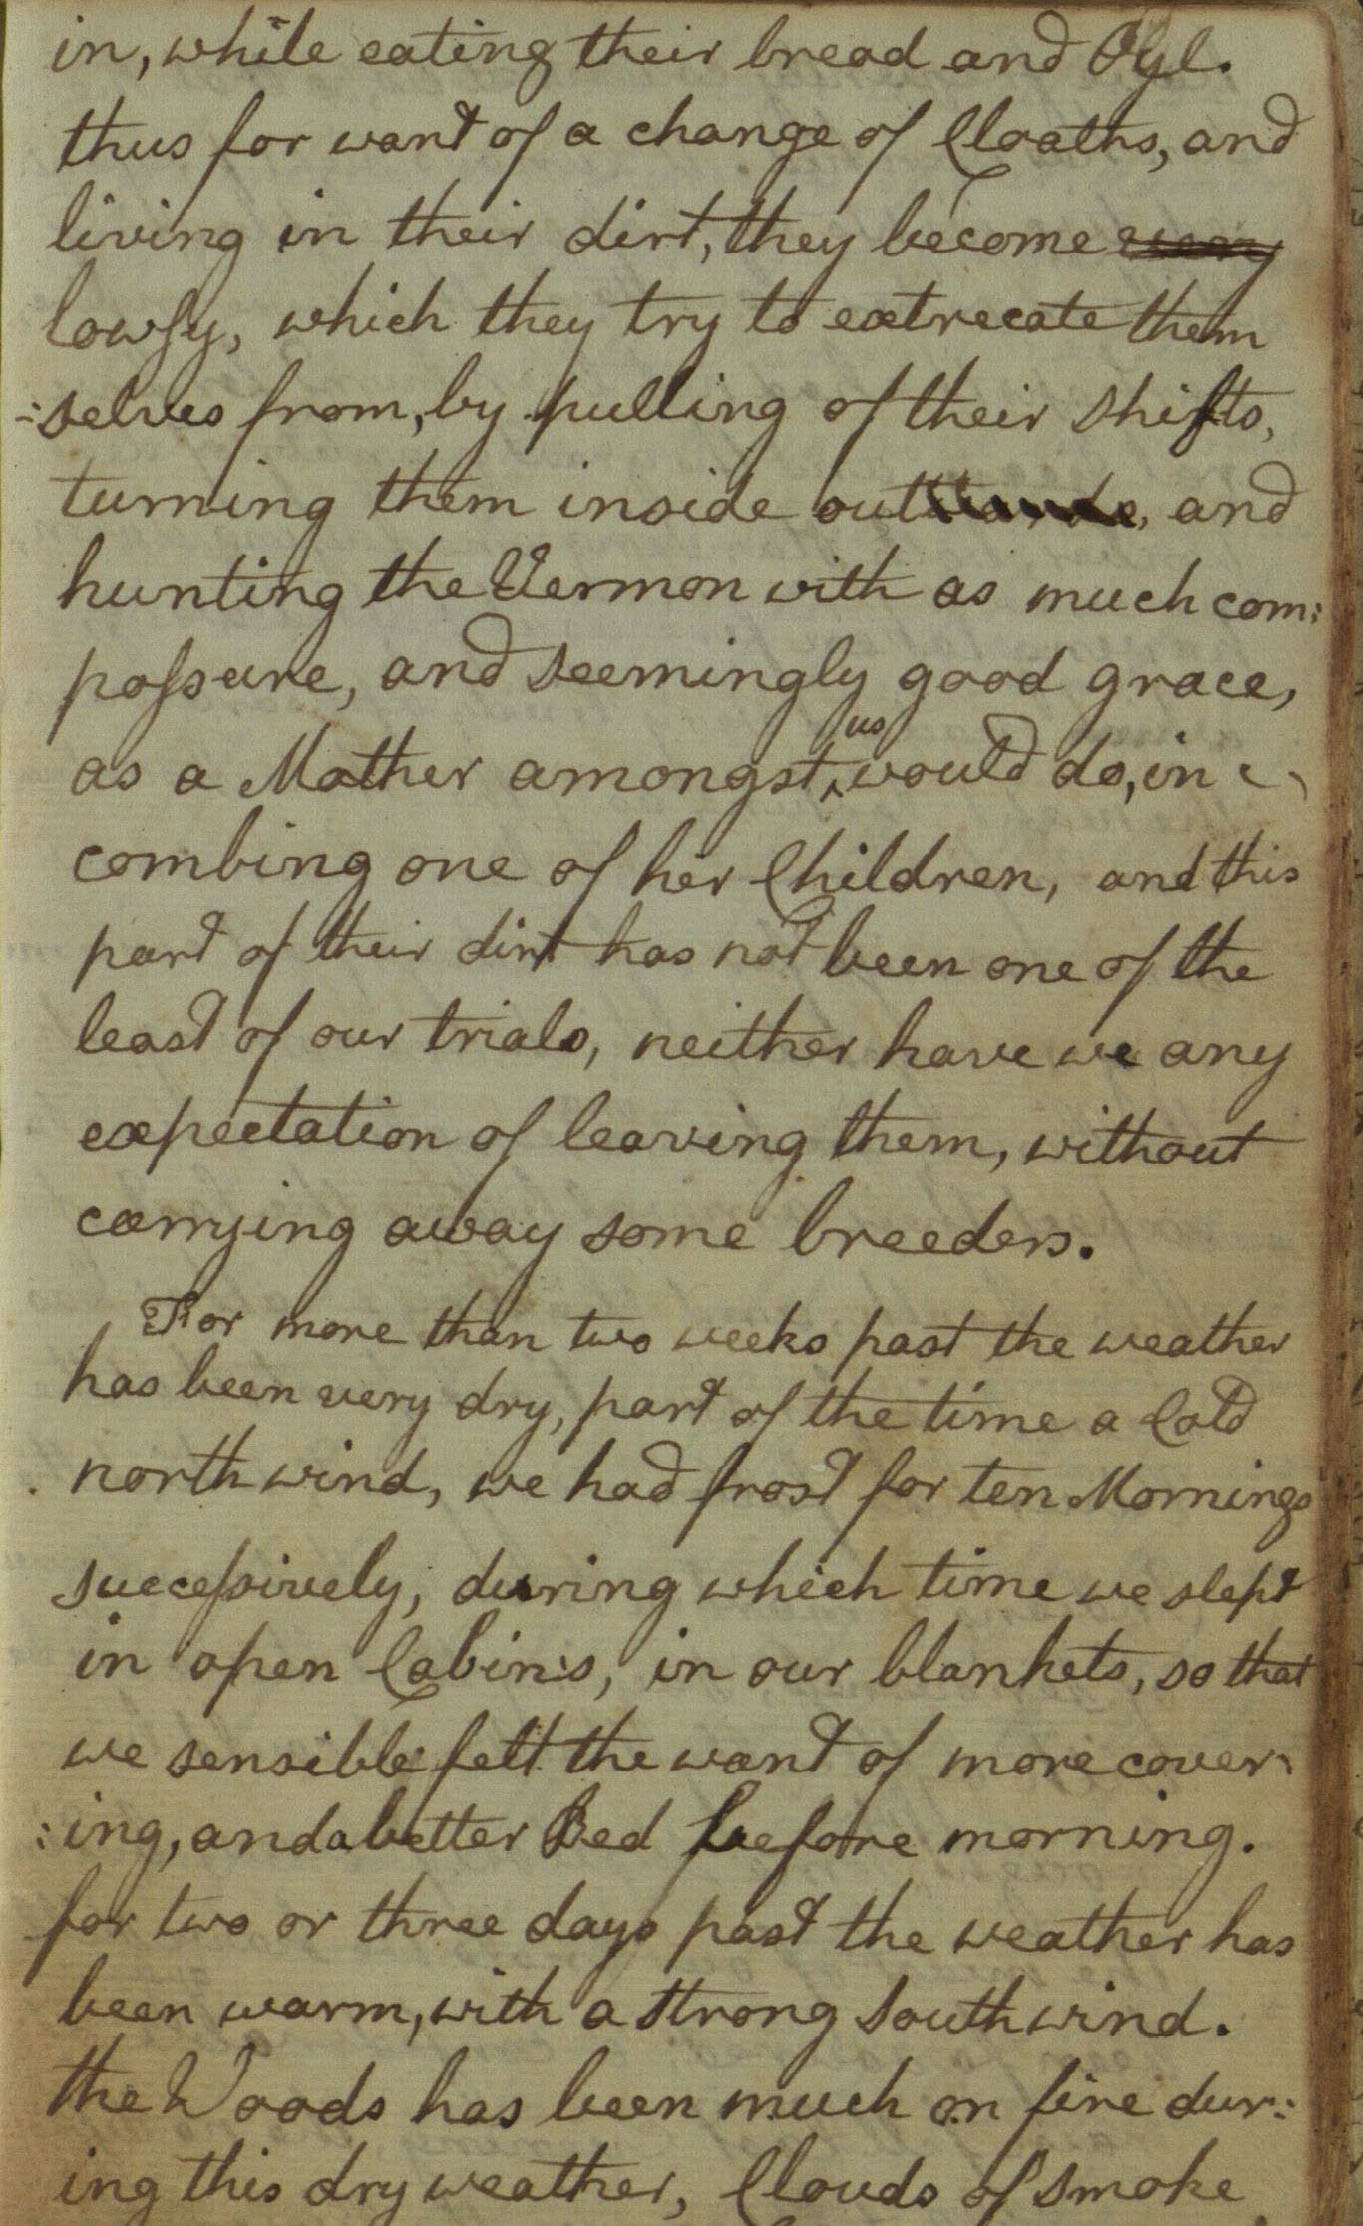 in, while eating their bread and Oyl.
thus for want of a change of Cloaths, and
living in their dirt, they become
lowsy, which they try to extrecate them
:selves from, by pulling of their shifts,
turning them inside out, and
hunting the Vermon with as much com:
possure, and seemingly good grace,
as a Mother amongst us would do, in
combing one of her Children, and this
part of their dirt has not been one of the
least of our trials, neither have we any
expectation of leaving them, without
carrying away some breeders.
For more than two weeks past the weather
has been very dry, part of the time a Cold
north wind, we had frost for ten Mornings
successively, during which time we slept
in open Cabins, in our blankets, so that
we sensible felt the want of more cover:
:ing, and a better Bed before morning.
for two or three days past the weather has
been warm, with a strong South wind.
the Woods has been much on fire dur:
ing this dry weather, Clouds of smoke